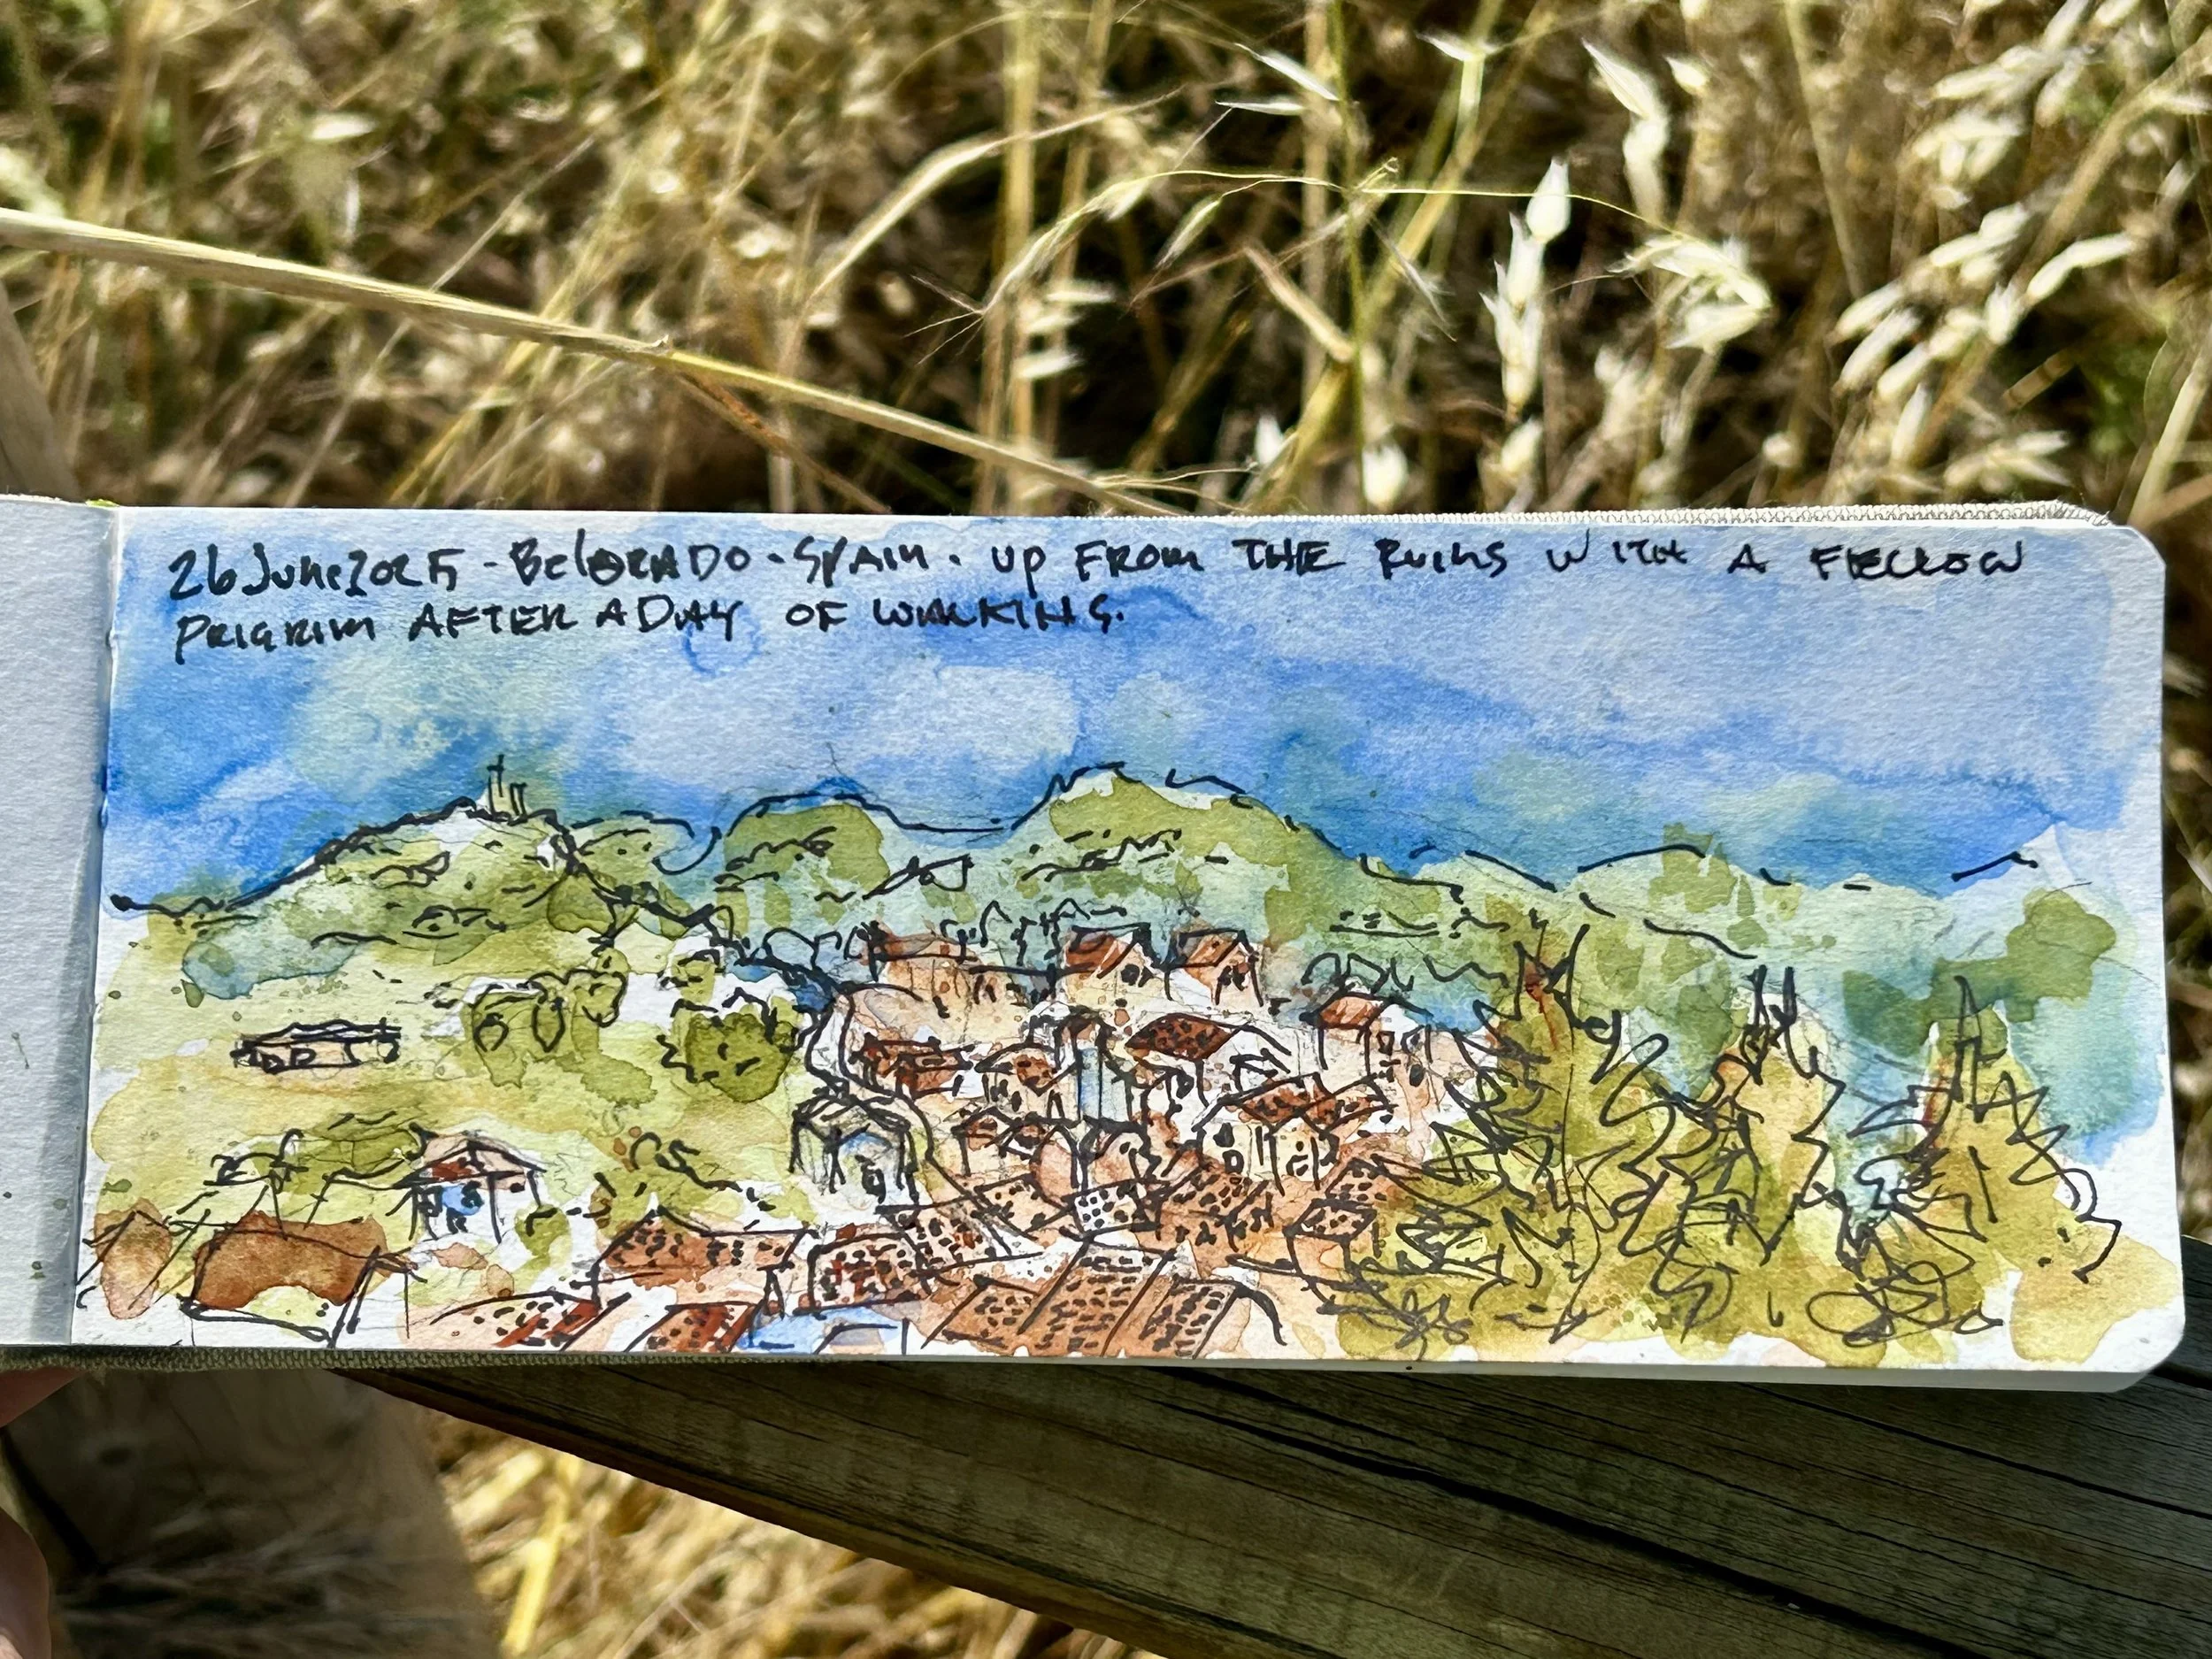 26 June 2025 - Belorado - Spain. up FROM THE Ruins WITH A FELLOW
PILGRIM AFTER A DAY OF WALKING.